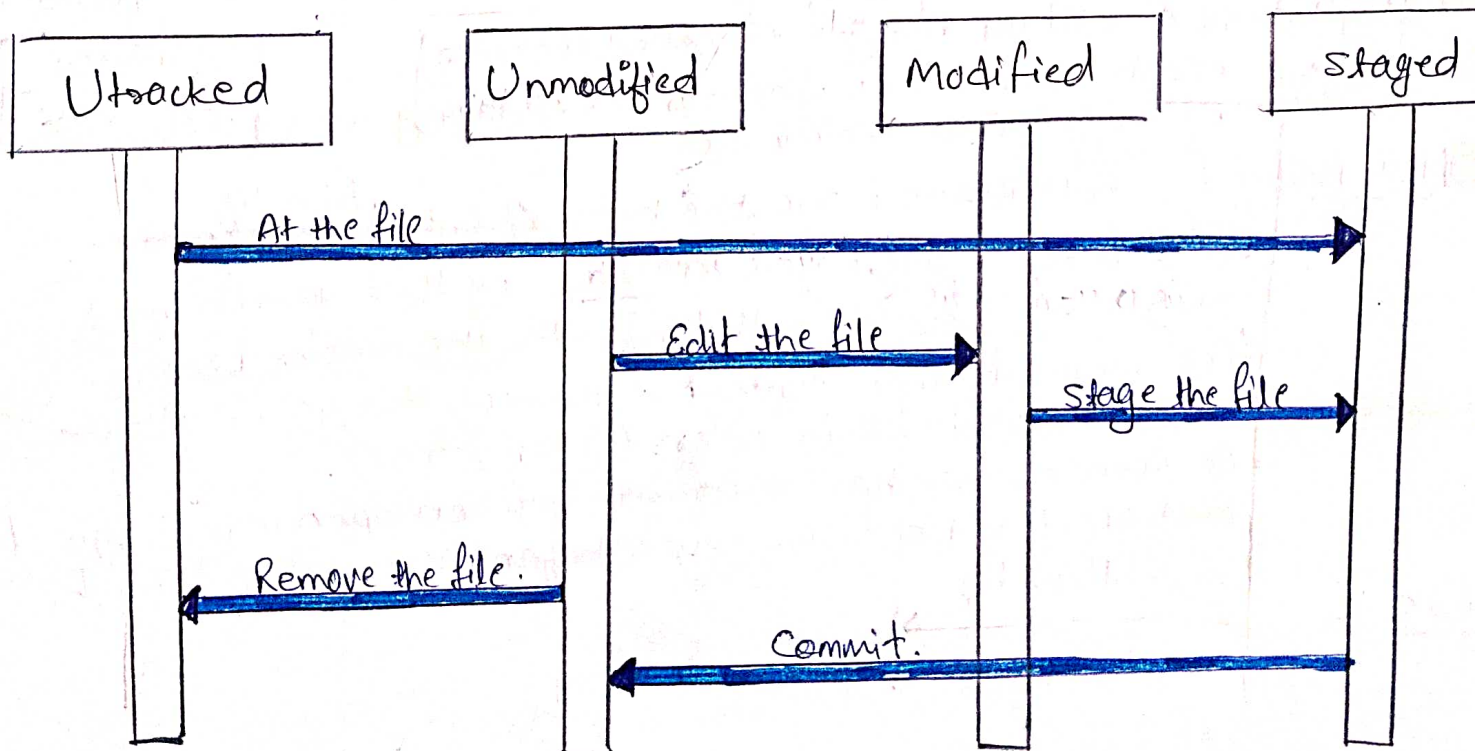 Utracked
Unmodified
Modified
Staged
At the file
Edit the file
Stage the file
Remove the file.
Commit.